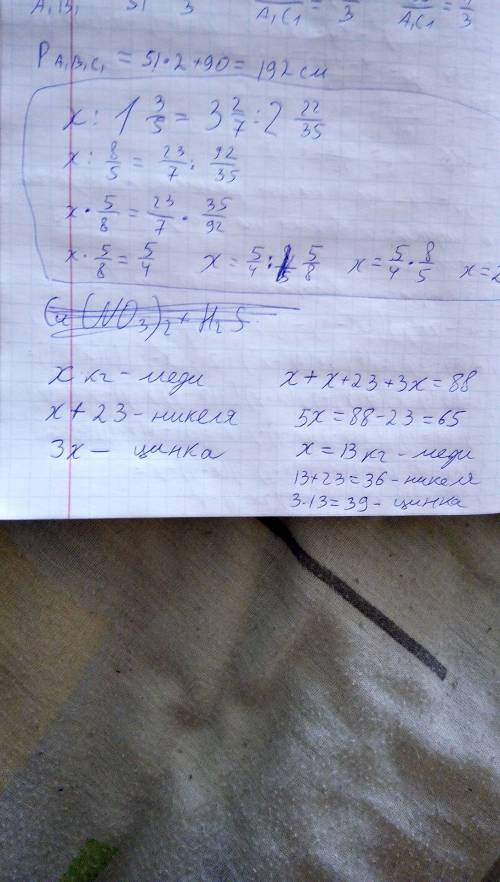 P A₁B₁C₁ = 51·2+90= 192 см
x : 1 3/5 = 3 2/7 : 2 22/35
x : 8/5 = 23/7 : 92/35
x · 5/8 = 23/7 · 35/92
x · 5/8 = 5/4 x = 5/4 : 5/8 x = 5/4 · 8/5 x = 2
(NO₃)₂ + H₂S
x кг – меди x + x + 23 + 3x = 88
x + 23 – никеля 5x = 88 – 23 = 65
3x – цинка x = 13 кг – меди
13+23=36 – никеля
3·13=39 – цинка